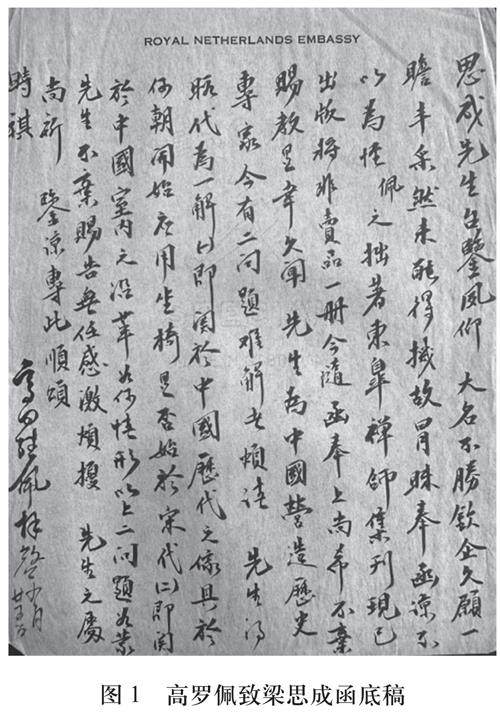 ROYAL NETHERLANDS EMBASSY
思成先生台鑒夙仰 大名不勝欽企久願一
瞻丰采然未能得機故冒昧奉函諒不
以為怪 佩之拙著東皐禪師集刊現已
出版將非賣品一冊今隨函奉上尚希不棄
賜教是幸久聞 先生為中國營造歷史
專家今有二問題難解者煩請 先生得
暇代為一解㈠即關於中國歷代之傢具於
何朝開始應用坐椅是否始於宋代㈡即關
於中國室內之沿革如何情形以上二問題如蒙
先生不棄賜告無任感激煩擾 先生之處
尚祈 鑒諒專此順頌
時祺
高羅佩拜啓
图 1 高罗佩致梁思成函底稿